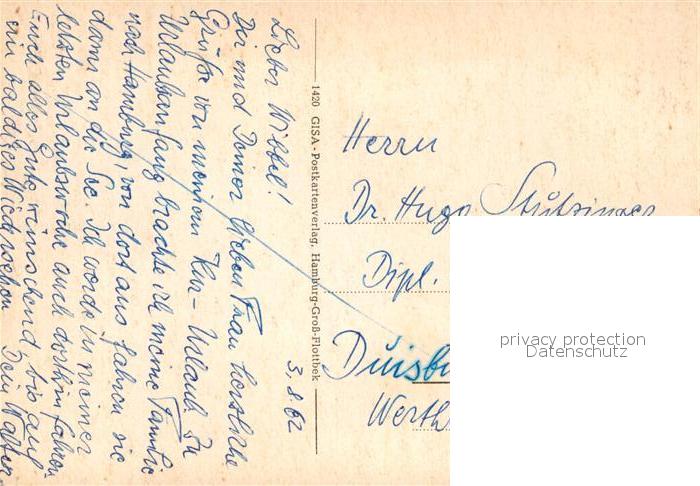 3.8.62
Lieber Wibbel!
Dir und Deiner lieben Frau herzliche
Grüße von meinem Kur-Urlaub. Zu
Urlaubsanfang brachte ich meine Familie
nach Hamburg von dort aus fahren sie
dann an die See. Ich werde in meiner
letzten Urlaubswoche auch dorthin fahren.
Euch alles Gute wünschend bis auf
ein baldiges Wiedersehen Dein Walter
1420 GISA-Postkartenverlag, Hamburg-Groß-Flottbek
Herrn
Dr. Hugo Stützinger
Dipl.
Duisbu
Werth
privacy protection
Datenschutz